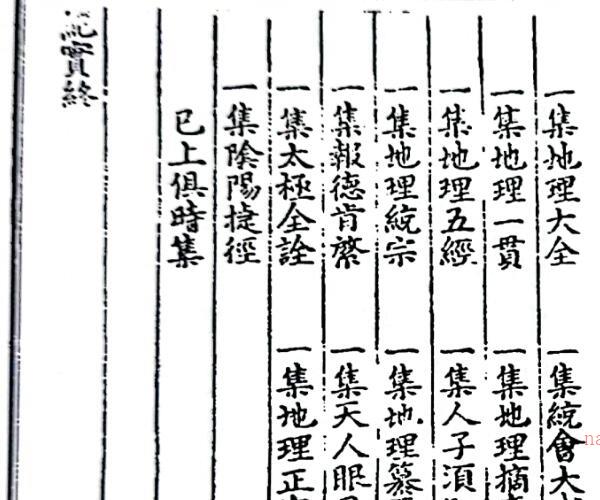 一集地理大全 一集統會大
一集地理一貫 一集地理摘
一集地理五經 一集人子須
一集地理統宗 一集地理纂
一集報德肯綮 一集天人眼
一集太極全詮 一集地理正
一集陰陽捷徑
已上俱時集
紀實終
na